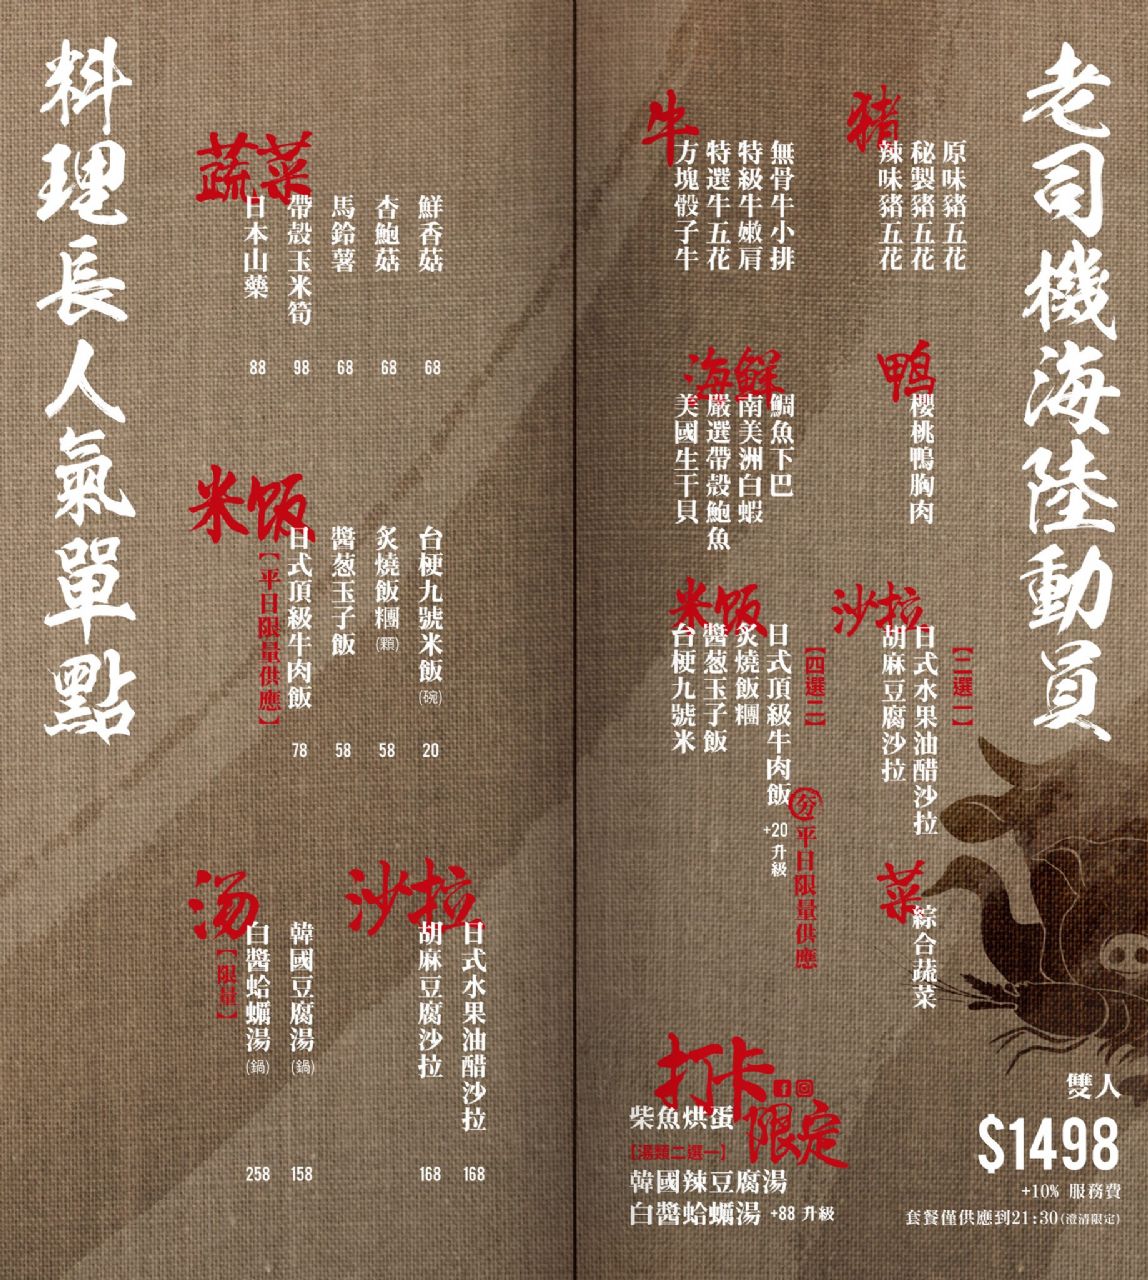 老司機海陸動員
豬
原味豬五花
秘製豬五花
辣味豬五花
牛
無骨牛小排
特級牛嫩肩
特選牛五花
方塊骰子牛
鴨
櫻桃鴨胸肉
海鮮
鯛魚下巴
南美洲白蝦
嚴選帶殼鮑魚
美國生干貝
沙拉
【二選一】
日式水果油醋沙拉
胡麻豆腐沙拉
米饭
【四選二】
日式頂級牛肉飯 +20 升級
夯 平日限量供應
炙燒飯糰
醬葱玉子飯
台梗九號米
菜
綜合蔬菜
打卡限定
柴魚烘蛋
【湯類二選一】
韓國辣豆腐湯
白醬蛤蠣湯 +88 升級
雙人
$1498
+10% 服務費
套餐僅供應到21:30(澄清限定)
料理長人氣單點
蔬菜
鮮香菇 68
杏鮑菇 68
馬鈴薯 68
帶殼玉米筍 98
日本山藥 88
米饭
台梗九號米飯(碗) 20
炙燒飯糰(顆) 58
醬葱玉子飯 58
日式頂級牛肉飯 78
【平日限量供應】
沙拉
日式水果油醋沙拉 168
胡麻豆腐沙拉 168
汤
韓國豆腐湯(鍋) 158
白醬蛤蠣湯(鍋) 258
【限量】